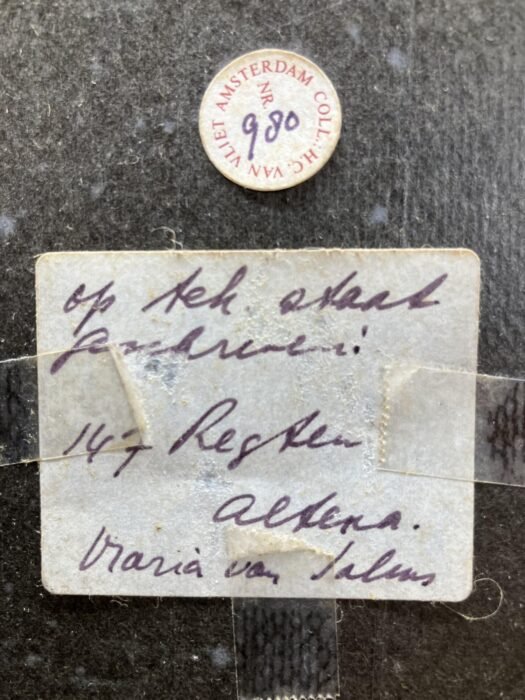 COLL.: H.C. VAN VLIET AMSTERDAM
NR.
980
op tek staat
geschreven:
147 Regter
Altena.
Maria van